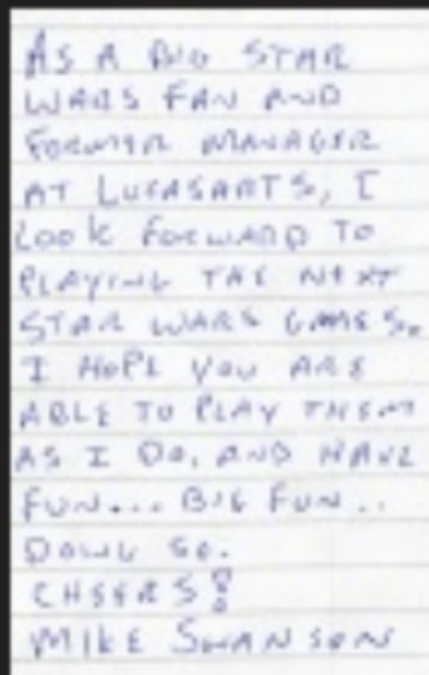 AS A BIG STAR
WARS FAN AND
FORMER MANAGER
AT LUCASARTS, I
LOOK FORWARD TO
PLAYING THE NEXT
STAR WARS GAMES.
I HOPE YOU ARE
ABLE TO PLAY THEM
AS I DO, AND HAVE
FUN... BIG FUN..
DOING SO.
CHEERS!
MIKE SWANSON